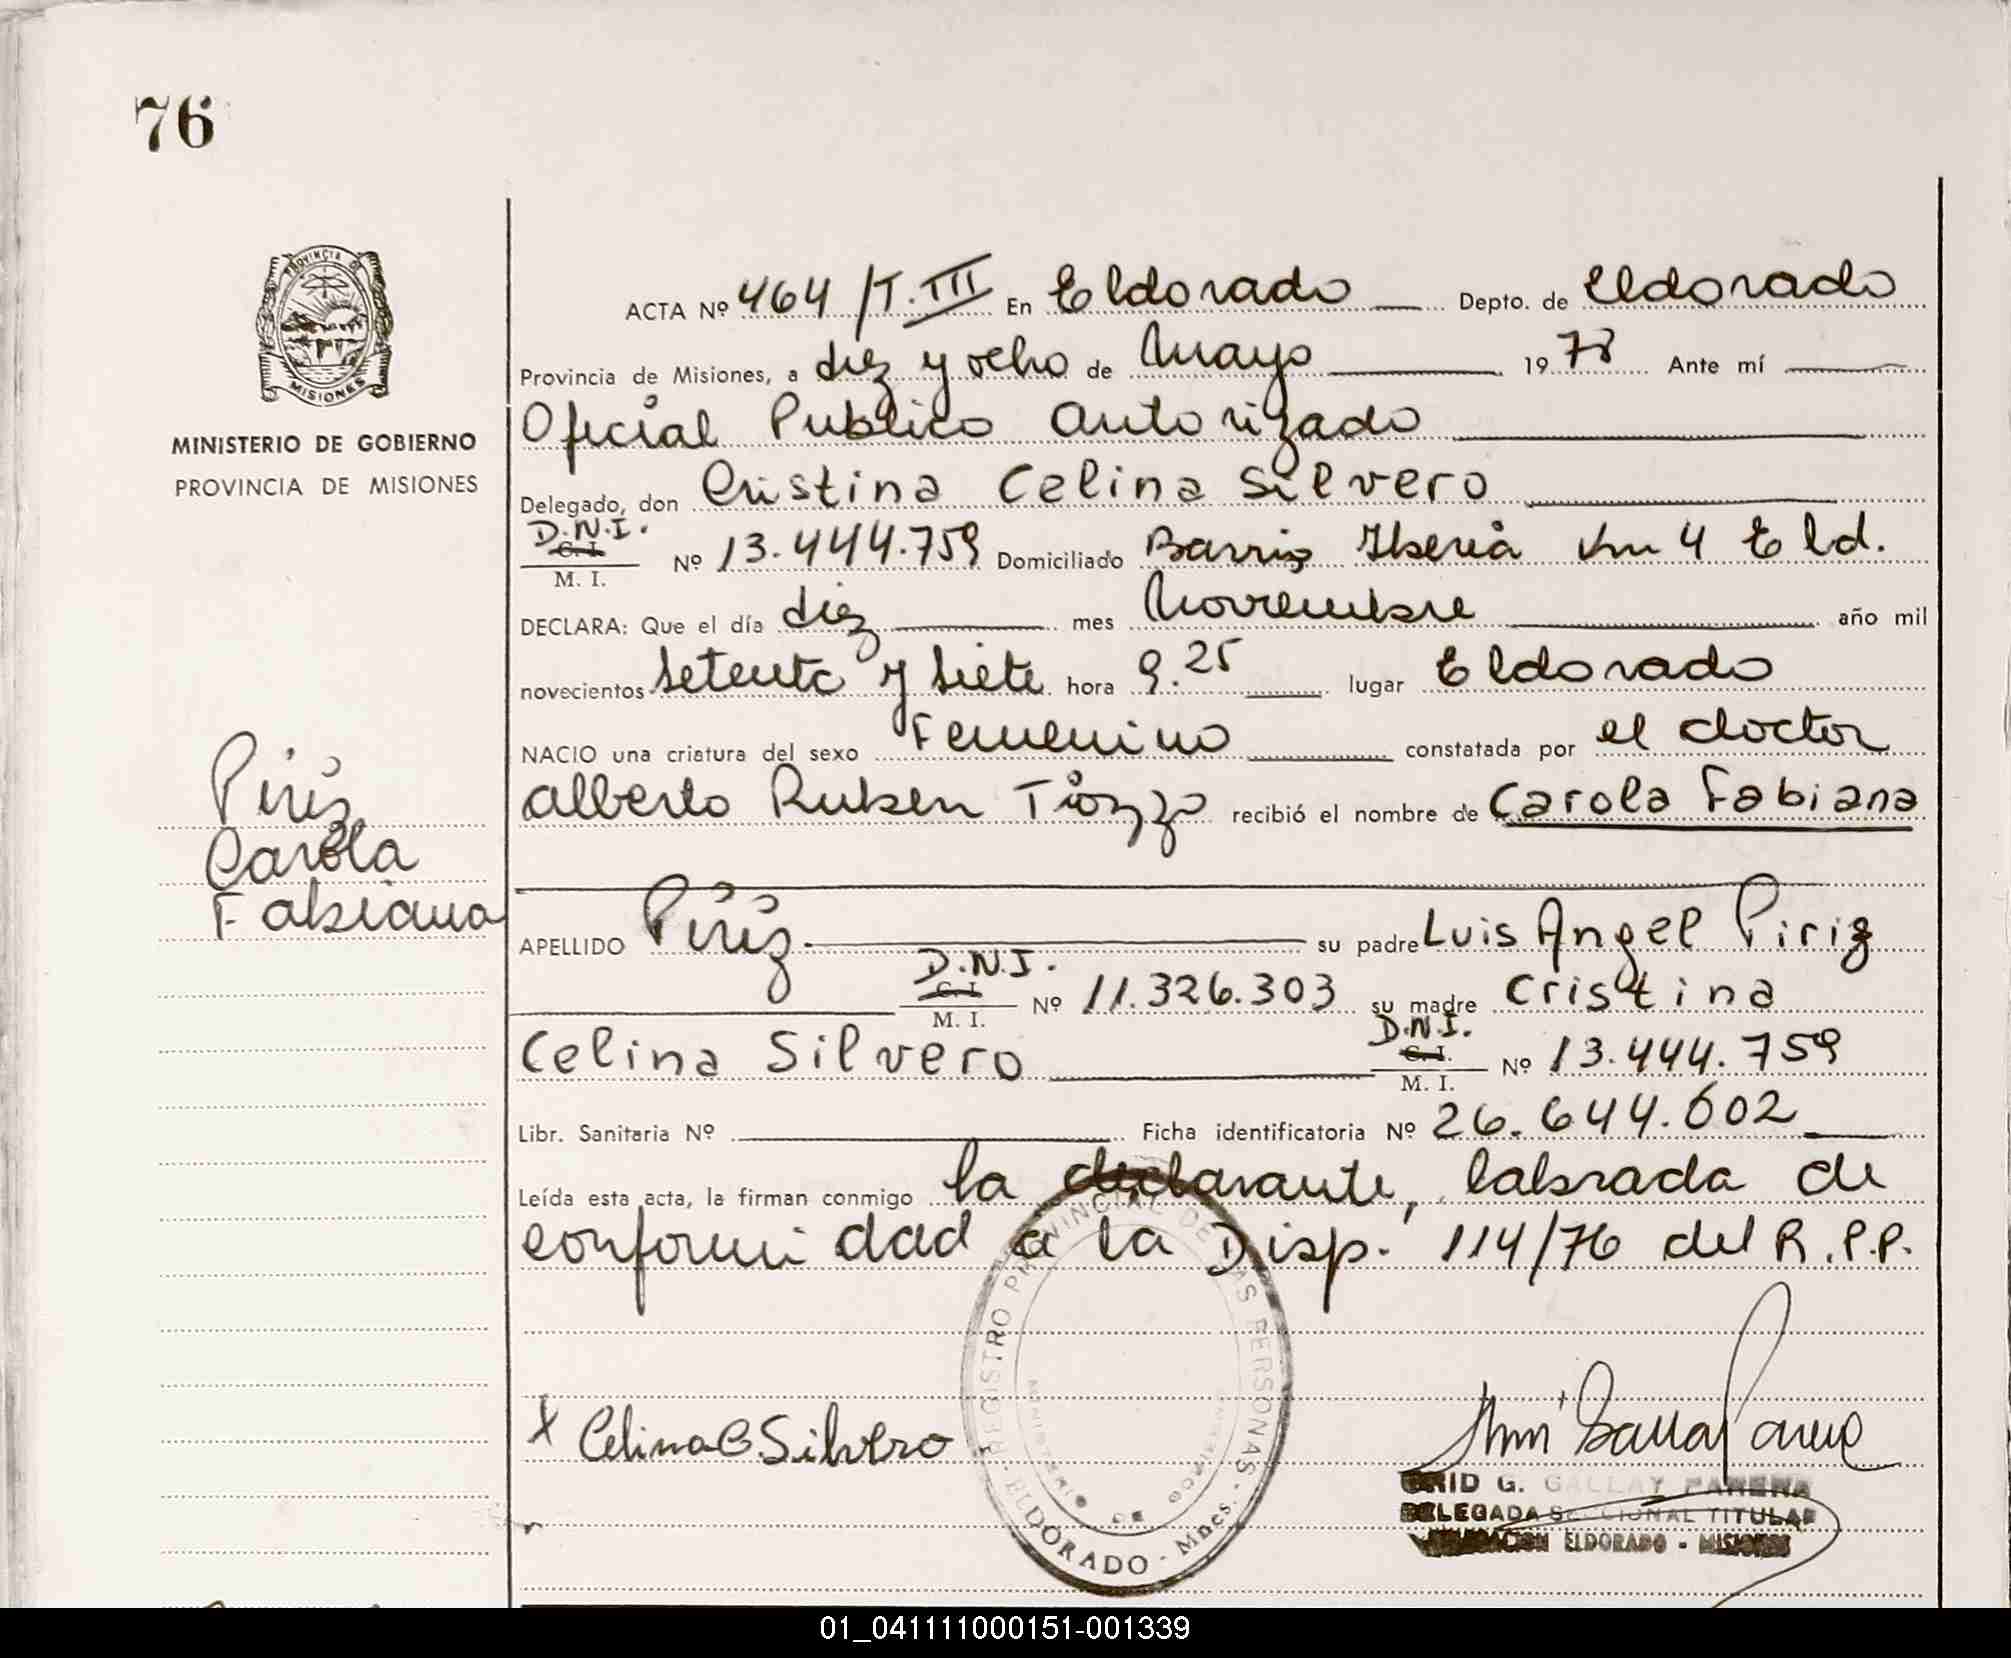 76
PROVINCIA DE
MISIONES
MINISTERIO DE GOBIERNO
PROVINCIA DE MISIONES
Piriz
Carola
Fabiana
ACTA Nº 464/T.III En Eldorado Depto. de Eldorado
Provincia de Misiones, a diez y ocho de Mayo 1978 Ante mí
Oficial Publico Autorizado
Delegado, don Cristina Celina Silvero
D.N.I.
C. I.
M. I. Nº 13.444.759 Domiciliado Barrio Iberia Km 4 Eld.
DECLARA: Que el día diez mes Noviembre año mil
novecientos Setenta y Siete hora 9.25 lugar Eldorado
NACIO una criatura del sexo Femenino constatada por el doctor
Alberto Ruben Tiozzo recibió el nombre de Carola Fabiana
APELLIDO Piriz su padre Luis Angel Piriz
D.N.I.
C. I.
M. I. Nº 11.326.303 su madre Cristina
Celina Silvero D.N.I.
C. I.
M. I. Nº 13.444.759
Libr. Sanitaria Nº Ficha identificatoria Nº 26.644.602
Leída esta acta, la firman conmigo la declarante, labrada de
conformidad a la Disp. 114/76 del R.P.P.
REGISTRO PROVINCIAL DE LAS PERSONAS
MINISTERIO DE GOBIERNO
ELDORADO - Mnes.
X Celina C Silvero
G. GALLAY PARERA
DELEGADA SECCIONAL TITULAR
DELEGACION ELDORADO - MISIONES
01_041111000151-001339